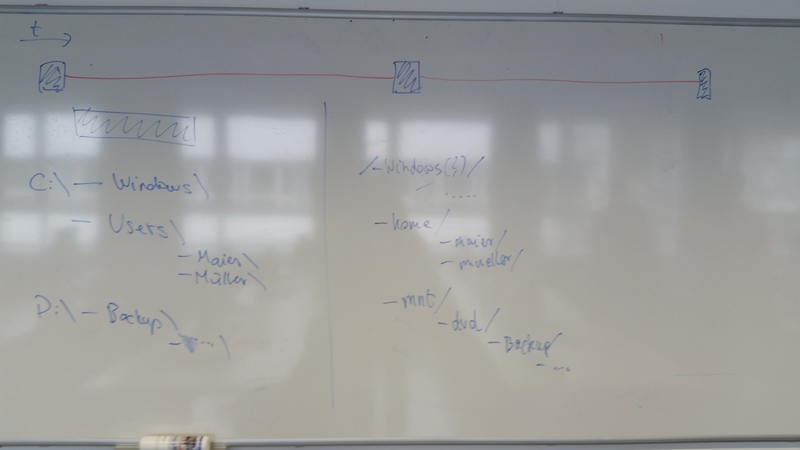 t
C:\ — Windows\
— Users\
— Maier\
— Müller\
D:\ — Backup\
— ....\
/ — Windows(?)/
.....
— home/
— maier/
— mueller/
— mnt/
— dvd/
— Backup/
— ...